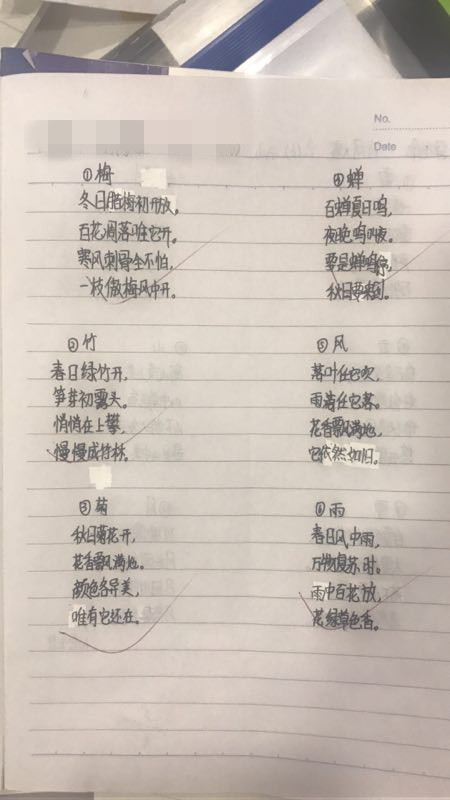 No.
Date
①梅
冬日腊梅初开放。
百花凋落唯它开。
寒风刺骨全不怕,
一枝傲梅风中开。
②竹
春日绿竹开,
笋芽初露头。
悄悄在上攀,
慢慢成竹林。
③菊
秋日菊花开,
花香飘满地。
颜色各异美,
唯有它还在。
④蝉
百蝉夏日鸣,
夜晚鸣叫夜。
要是蝉鸣停,
秋日要来到。
⑤风
落叶任它吹,
雨落任它落。
花香飘满地,
它依然如旧。
⑥雨
春日风中雨,
万物复苏时。
雨中百花放,
花绿草色香。